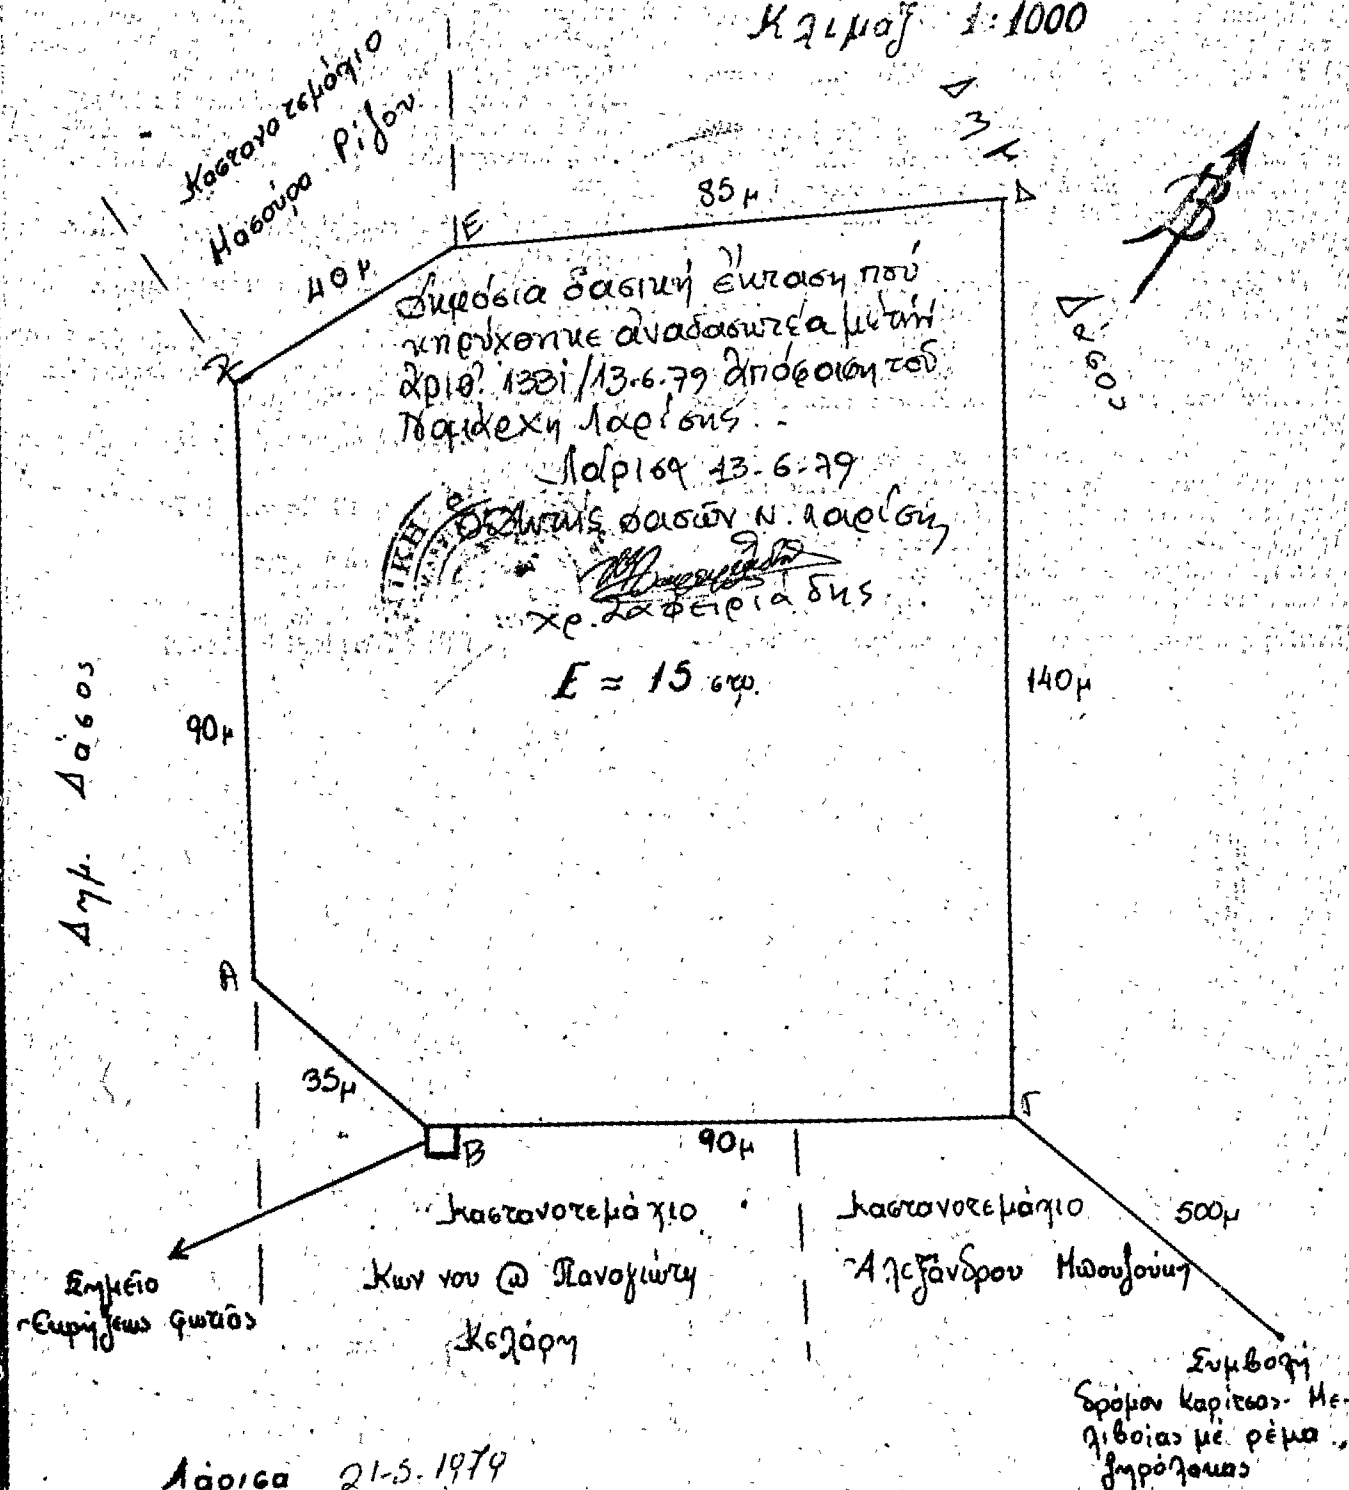 Κλιμαξ 1:1000
Καστανοτεμάχιο
Μασούρα Ρίζου
Δημ
Δάσος
Β
85μ
Ε
Δ
40μ
Ζ
Δημόσια δασική έκταση πού
κηρύχθηκε αναδασωτέα με τήν
άριθ. 1331/13-6-79 Απόφαση τού
Νομάρχη Λαρίσης.-
Λάρισα 13-6-79
Ο Δ/ντής Δασών Ν. Λαρίσης
ΙΚΗ
Χρ. Σαφειριάδης
Ε ≈ 15 στρ.
90μ
140μ
Δημ. Δάσος
Α
35μ
Β
90μ
Γ
500μ
Καστανοτεμάχιο
Κων νου Παναγιώτη
Κελάρη
Καστανοτεμάχιο
Αλεξάνδρου Μπουζούκη
Σημείο
Εκρήξεως φωτιάς
Συμβολή
δρόμου Καρίτσας- Με-
λιβοίας μέ ρέμα
ξηρόλακας
Λάρισα 21-5-1979